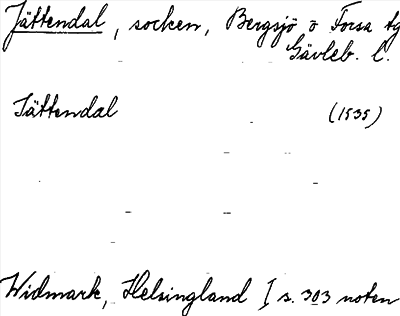 Jättendal, socken, Bergsjö o Forsa tg
Gävleb. l.
Jättendal (1535)
Widmark, Helsingland I s. 303 noten